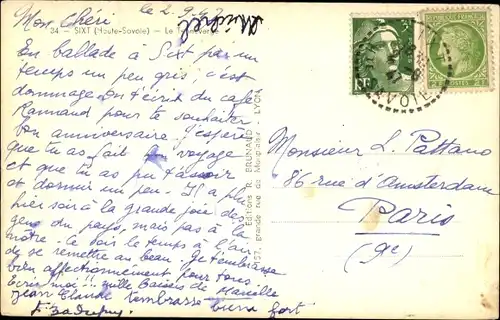 le 2.9.47
Mon Chéri
34 - SIXT (Haute-Savoie) - Le
En ballade à Sixt par un
temps un peu gris, c'est
dommage. On t'écrit du café
Rannaud pour te souhaiter
bon anniversaire. J'espère
que tu as fait le voyage
et que tu as pu t'asseoir
et dormir un peu. Il a plu
hier soir à la grande joie des
gens du pays, mais pas à la
nôtre. Ce soir le temps à l'air
de se remettre au beau. Je t'embrasse
bien affectueusement pour tous
Ecris moi!! mille Baisers de
Jean Claude t'embrasse bien fort
Editions R. BRUNAND
157, grande rue de LYON
SAVOIE
Monsieur L. Pattano
86 rue d'Amsterdam
Paris
(9e)